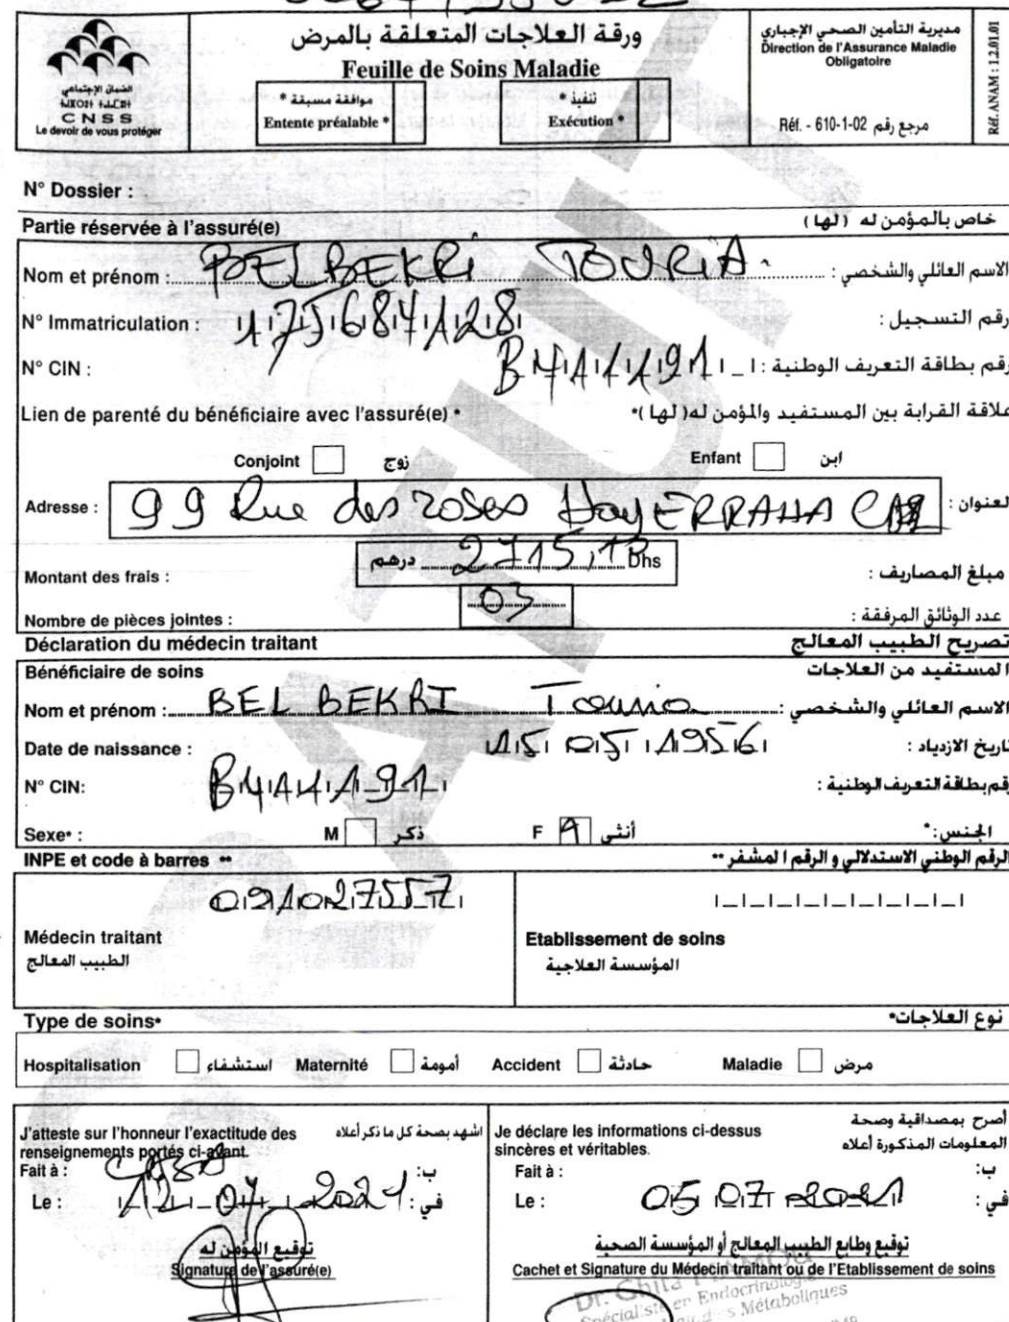 ورقة العلاجات المتعلقة بالمرض
Feuille de Soins Maladie
موافقة مسبقة *
Entente préalable *
تنفيذ *
Exécution *
مديرية التأمين الصحي الإجباري
Direction de l'Assurance Maladie
Obligatoire
Réf. - 610-1-02 مرجع رقم
Réf. ANAM : 1.2.01.01
الضمان الإجتماعي
CNSS
Le devoir de vous protéger
N° Dossier :
Partie réservée à l'assuré(e) خاص بالمؤمن له (لها)
Nom et prénom : BELBEKRi TOURIA الاسم العائلي والشخصي :
N° Immatriculation : 175684128 رقم التسجيل :
N° CIN : رقم بطاقة التعريف الوطنية :
Lien de parenté du bénéficiaire avec l'assuré(e) * علاقة القرابة بين المستفيد والمؤمن له( لها )*
Conjoint زوج Enfant ابن
Adresse : 99 Rue des roses Hay ERRAHA العنوان :
Montant des frais : درهم Dhs مبلغ المصاريف :
Nombre de pièces jointes : 03 عدد الوثائق المرفقة :
Déclaration du médecin traitant تصريح الطبيب المعالج
Bénéficiaire de soins المستفيد من العلاجات
Nom et prénom : BEL BEKRI Touria الاسم العائلي والشخصي :
Date de naissance : 15 05 1956 تاريخ الازدياد :
N° CIN: رقم بطاقة التعريف الوطنية :
Sexe* : M ذكر F أنثى الجنس:*
INPE et code à barres ** الرقم الوطني الاستدلالي و الرقم المشفر **
091027557
Médecin traitant
الطبيب المعالج
Etablissement de soins
المؤسسة العلاجية
Type de soins* نوع العلاجات*
Hospitalisation استشفاء Maternité أمومة Accident حادثة Maladie مرض
J'atteste sur l'honneur l'exactitude des اشهد بصحة كل ما ذكر أعلاه
renseignements portés ci-avant.
Fait à : CASA ب:
Le : في :
توقيع المؤمن له
Signature de l'assuré(e)
أصرح بمصداقية وصحة
Je déclare les informations ci-dessus المعلومات المذكورة أعلاه
sincères et véritables.
Fait à : ب:
Le : 05 07 2021 في :
توقيع وطابع الطبيب المعالج أو المؤسسة الصحية
Cachet et Signature du Médecin traitant ou de l'Etablissement de soins
Dr. Ghita
Spécialiste en Endocrinologie
Métaboliques